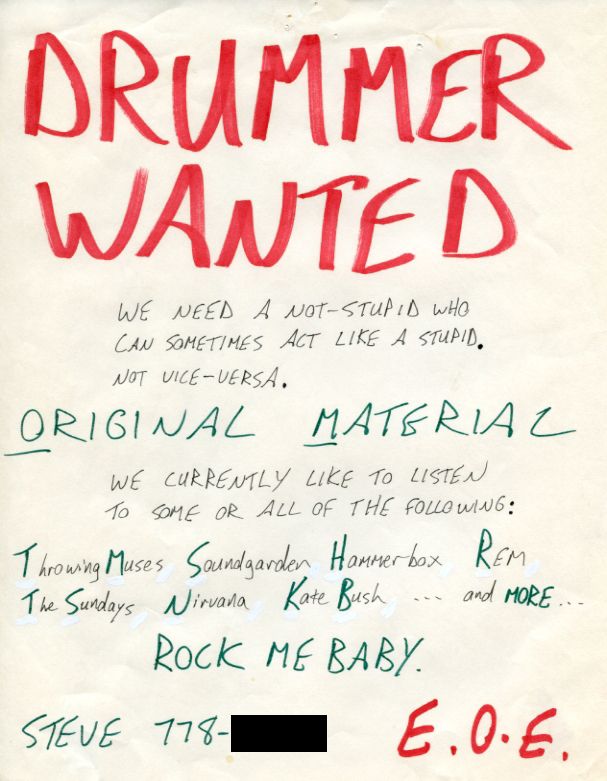 DRUMMER
WANTED
WE NEED A NOT-STUPID WHO
CAN SOMETIMES ACT LIKE A STUPID.
NOT VICE-VERSA.
ORIGINAL MATERIAL
WE CURRENTLY LIKE TO LISTEN
TO SOME OR ALL OF THE FOLLOWING:
Throwing Muses, Soundgarden, Hammerbox, REM,
The Sundays, Nirvana, Kate Bush, ... and MORE...
ROCK ME BABY.
STEVE 778-
E.O.E.